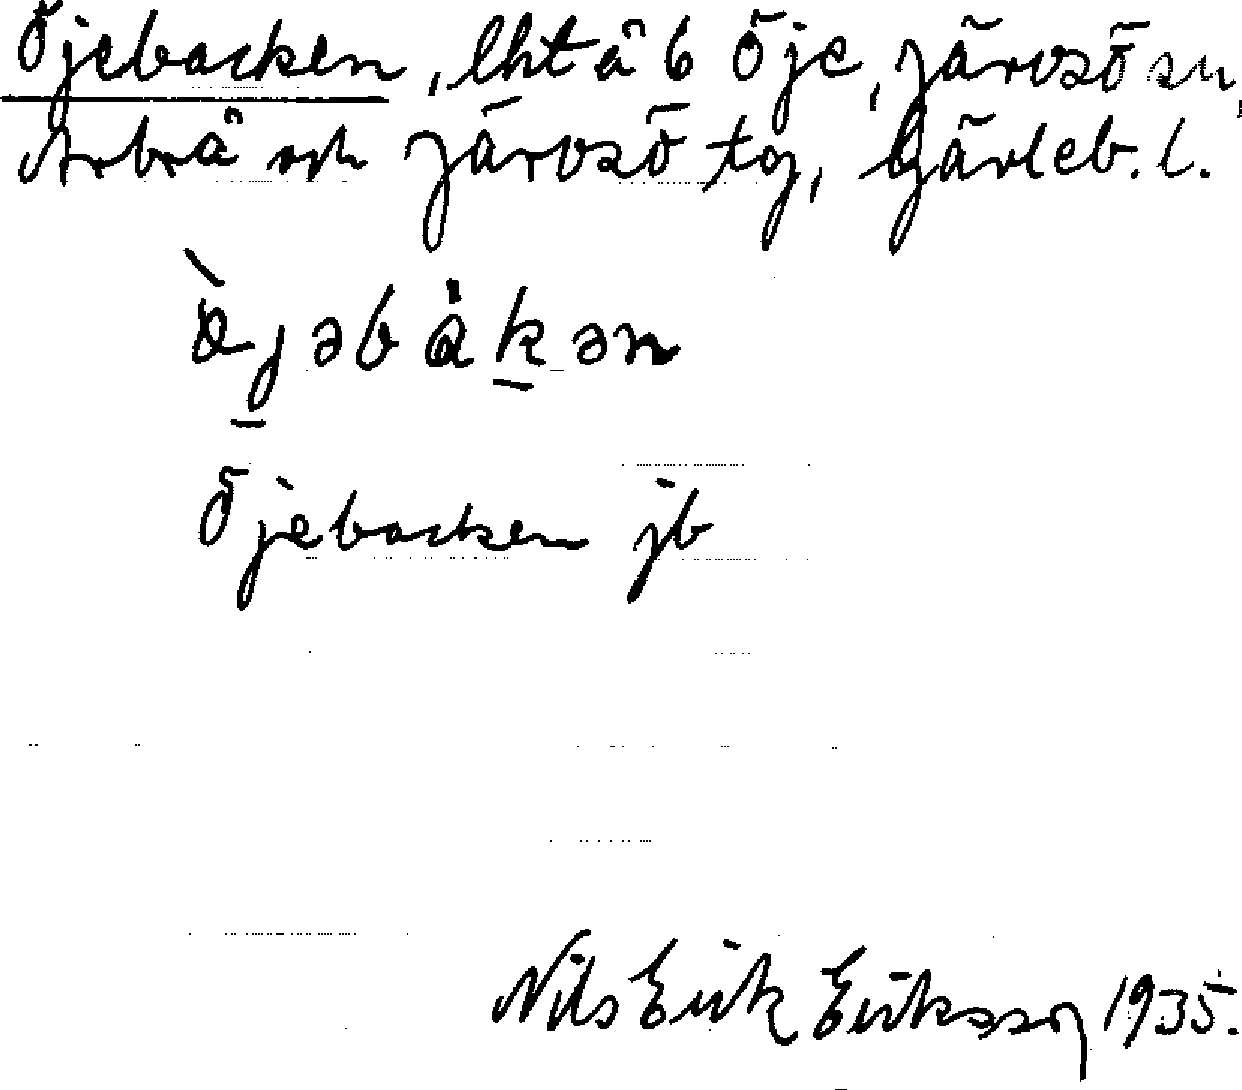 Öjebacken, lht å b Öje, Järvsö sn,
Arbrå och Järvsö tg, Gävleb. l.
Öjebacken jb
Nils Erik Eriksson 1935.